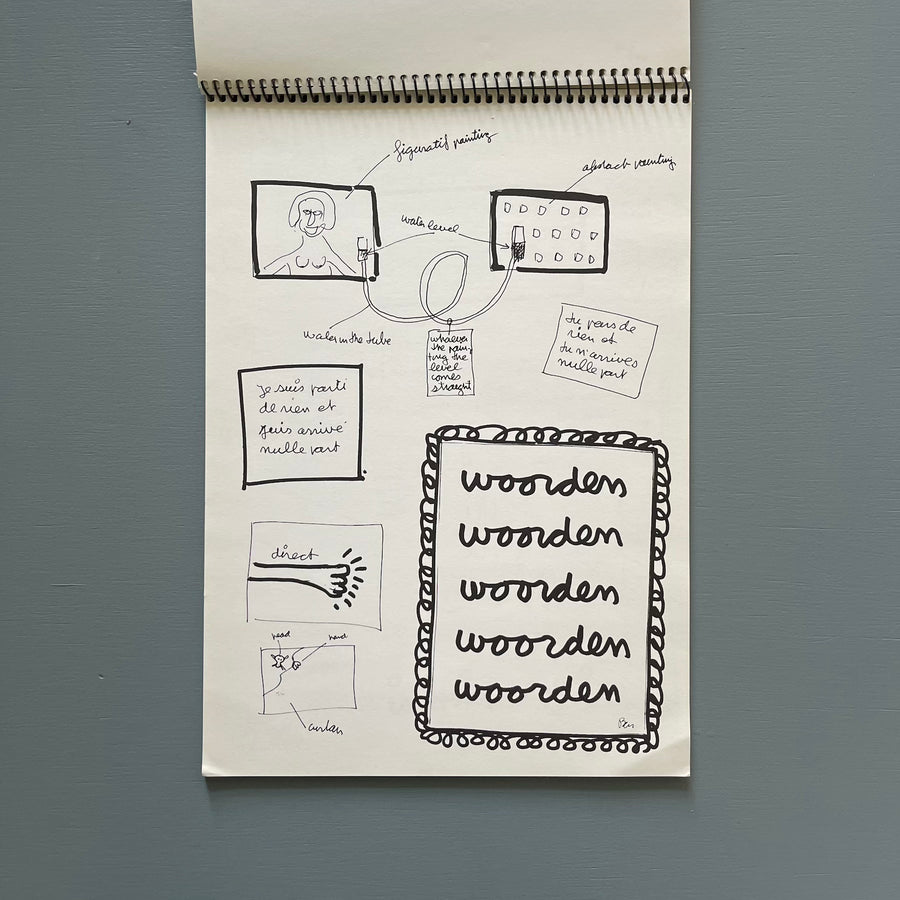 figuratif painting
abstract painting
water level
water in the tube
whatever
the pain-
ting the
level
comes
straight
tu pars de
rien et
tu n'arrives
nulle part
je suis parti
de rien et
suis arrivé
nulle part
direct
head
hand
curtain
woorden
woorden
woorden
woorden
woorden
Ben